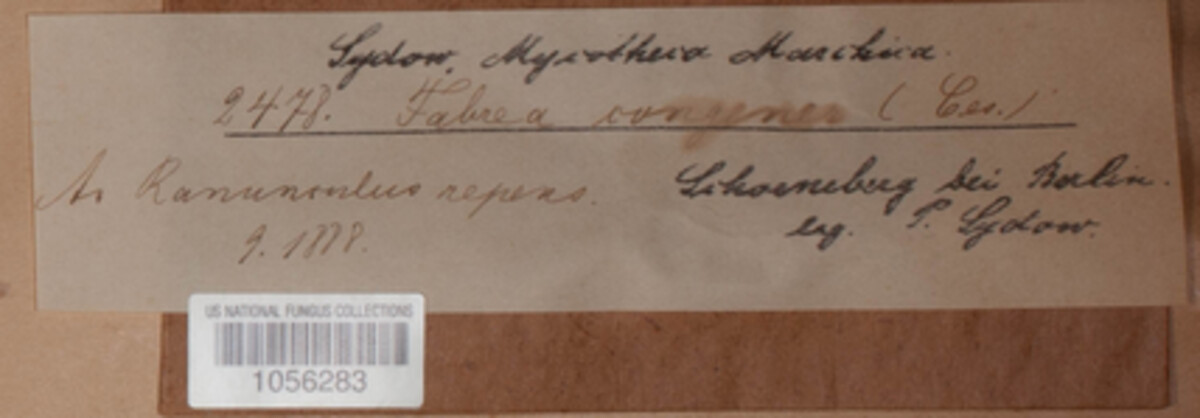 Sydow, Mycotheca Marchica.
2478. Fabrea congener (Ces.)
Ranunculus repens. Schoeneberg bei Berlin.
9. 1888. leg. P. Sydow.
US NATIONAL FUNGUS COLLECTIONS
1056283